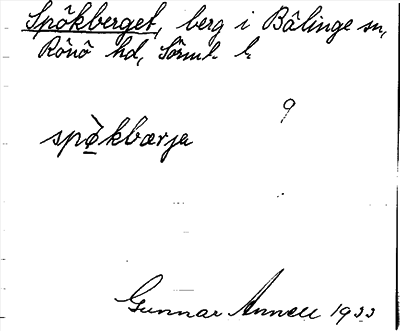 Spökberget, berg i Bälinge sn,
Rönö hd, Sörml. l.
9
spö̀kbærja
Gunnar Annell 1933